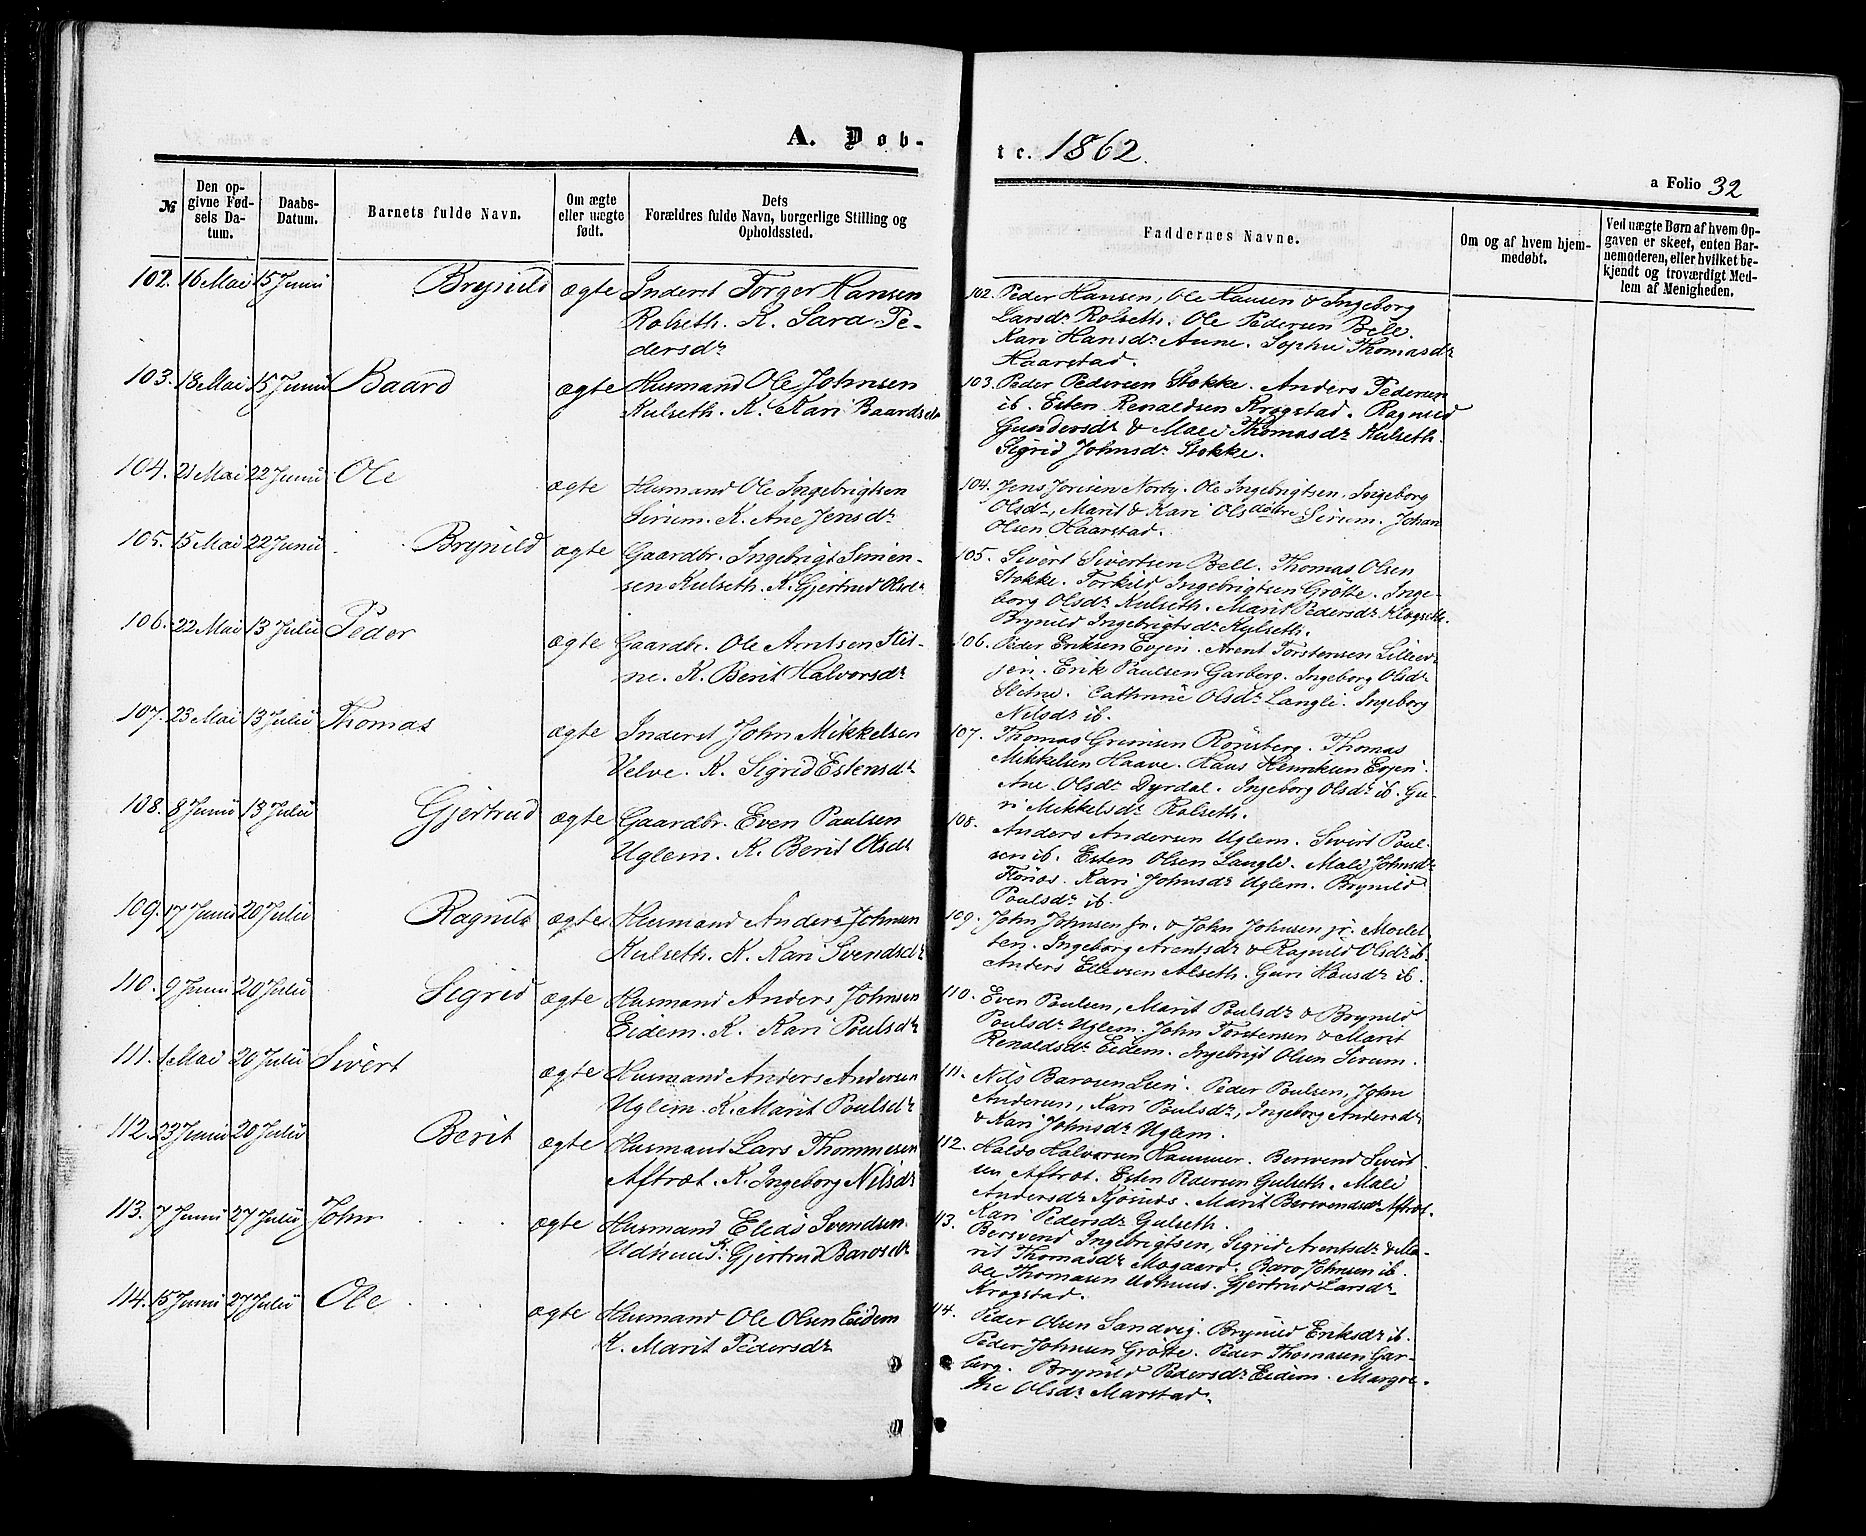 A. Døb-
te. 1862.
a Folio 32
№
Den op-
givne Fød-
sels Da-
tum.
Daabs-
Datum.
Barnets fulde Navn.
Om ægte
eller uægte
født.
Dets
Forældres fulde Navn, borgerlige Stilling og
Opholdssted.
Faddernes Navne.
Om og af hvem hjem-
medøbt.
Ved uægte Børn af hvem Op-
gaven er skeet, enten Bar-
nemoderen, eller hvilket be-
kjendt og troværdigt Med-
lem af Menigheden.
102. 16 Mai 15 Juni Brynild ægte Inderst Torger Hansen
Rolseth. K. Sara Pe-
dersdr
102. Peder Hansen, Ole Hansen & Ingeborg
Larsdr Rolseth. Ole Pedersen Bell.
Kari Hansdr Aune. Sophie Thomasdr
Haarstad.
103. 18 Mai 15 Juni Baard ægte Husmand Ole Johnsen
Kulseth. K. Kari Baardsdr
103. Peder Pedersen Stokke. Anders Pedersen
ib. Esten Renaldsen Krogstad. Ragnild
Gundersdr & Mali Thomasdr Kulseth.
Sigrid Johnsdr Stokke.
104. 21 Mai 22 Juni Ole ægte Husmand Ole Ingebrigtsen
Sirum. K. Ane Jensdr
104. Jens Jonsen Norby. Ole Ingebrigtsen, Ingeborg
Olsdr, Marit & Kari Olsdøtre Sirum. Johan
Olsen Haarstad.
105. 15 Mai 22 Juni Brynild ægte Gaardbr. Ingebrigt Simen-
sen Kulseth. K. Gjertrud Olsdr
105. Sivert Sivertsen Bell. Thomas Olsen
Stokke. Torkild Ingebrigtsen Grøtte. Inge-
borg Olsdr Kulseth. Marit Pedersdr
Brynild Ingebrigtsdr Kulseth.
106. 22 Mai 13 Julii Peder ægte Gaardbr. Ole Arntsen Slet-
ne. K. Berit Halvorsdr
106. Peder Eriksen Evjen. Arent Torstensen Lilleev-
jen. Erik Paulsen Garberg. Ingeborg Olsdr
Sletne. Cathrine Olsdr Langli. Ingeborg
Nilsdr ib.
107. 23 Mai 13 Julii Thomas ægte Inderst John Mikkelsen
Velve. K. Sigrid Estensdr
107. Thomas Grimsen Rønsberg. Thomas
Mikkelsen Haave. Hans Henriksen Evjen.
Ane Olsdr Dyrdal. Ingeborg Olsdr ib. Gu-
ri Mikkelsdr Rolseth.
108. 8 Juni 13 Julii Gjertrud ægte Gaardbr. Even Paulsen
Uglem. K. Berit Olsdr
108. Anders Andersen Uglem. Sivert Poul-
sen ib. Esten Olsen Langli. Mali Johnsdr
Flønæs. Kari Johnsdr Uglem. Brynild
Poulsdr ib.
109. 17 Juni 20 Julii Ragnild ægte Husmand Anders Johnsen
Kulseth. K. Kari Svendsdr
109. John Johnsen sr. & John Johnsen jr. Moslet-
ten. Ingeborg Arentsdr & Ragnild Olsdr ib.
Anders Ellevsen Alseth. Guri Hansdr ib.
110. 9 Juni 20 Julii Sigrid ægte Husmand Anders Johnsen
Eidem. K. Kari Poulsdr
110. Even Poulsen, Marit Poulsdr & Brynild
Poulsdr Uglem. John Torstensen & Marit
Renaldsdr Eidem. Ingebrigt Olsen Sirum.
111. 1 Mai 20 Julii Sivert ægte Husmand Anders Andersen
Uglem. K. Marit Poulsdr
111. Nils Barosen Lien. Peder Poulsen, John
Andersen, Kari Poulsdr, Ingeborg Andersdr
& Kari Johnsdr Uglem.
112. 23 Juni 20 Julii Berit ægte Husmand Lars Thommesen
Aftræt. K. Ingeborg Nilsdr
112. Haldo Halvorsen Hammer. Bersvend Sivert-
sen Aftræt. Esten Pedersen Gulseth. Mali
Andersdr Kjøsnæs. Marit Bersvendsdr Aftræt.
Kari Pedersdr Gulseth.
113. 7 Juni 27 Julii John ægte Husmand Elias Svendsen
Udhuus K. Gjertrud Barosdr
113. Bersvend Ingebrigtsen, Sigrid Arentsdr & Ma-
rit Thomasdr Mogaard. Baro Johnsen ib.
Ole Thomasen Udhuus. Gjertrud Larsdr
Krogstad.
114. 15 Juni 27 Julii Ole ægte Husmand Ole Olsen Eidem
K. Marit Pedersdr
114. Peder Olsen Sandvig. Brynild Eriksdr ib.
Peder Johnsen Grøtte. Peder Thomasen Gar-
berg. Brynild Pedersdr Eidem. Margre-
the Olsdr Marstad.